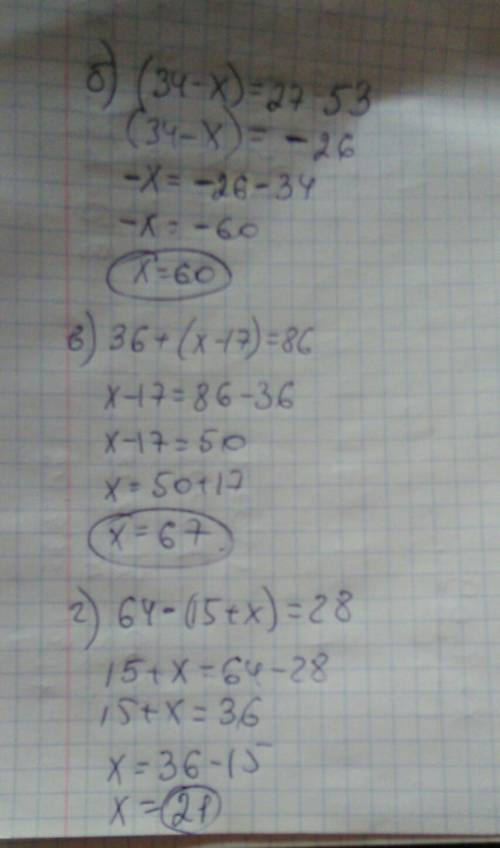 б) (34-x)=27-53
(34-x)= -26
-x= -26-34
-x= -60
x=60
в) 36+(x-17)=86
x-17=86-36
x-17=50
x=50+17
x=67
г) 64-(15+x)=28
15+x=64-28
15+x=36
x=36-15
x=21